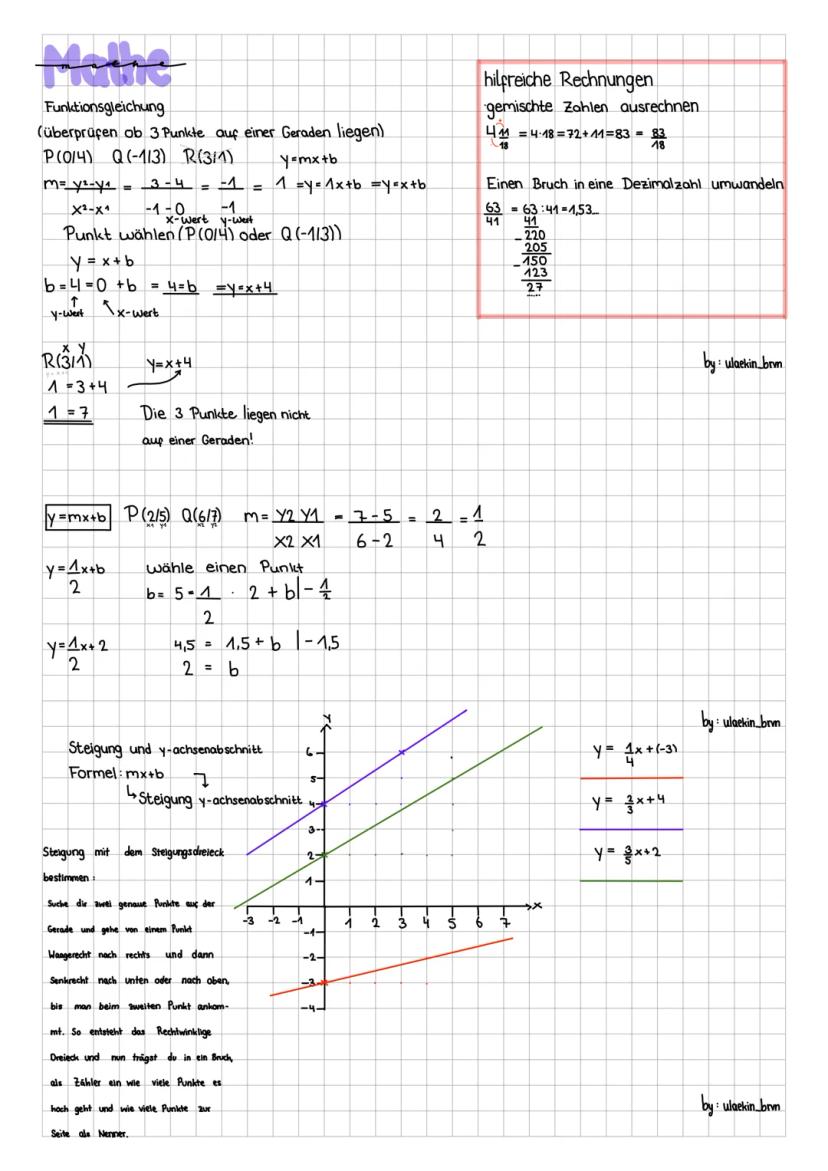 Mathe
mathe
Funktionsgleichung
(überprüfen ob 3 Punkte auf einer Geraden liegen)
P(0/4) Q(-1/3) R(3/1) y=mx+b
m= y²-y¹ / x²-x¹ = 3-4 / -1-0 = -1 / -1 = 1 =y=1x+b =y=x+b
x-Wert y-Wert
Punkt wählen (P(0/4) oder Q(-1/3))
y = x+b
b=4=0 +b = 4=b =y=x+4
↑
y-Wert x-Wert
x y
R(3/1) y=x+4
1 =3+4
1 =7 Die 3 Punkte liegen nicht
auf einer Geraden!
hilfreiche Rechnungen
gemischte Zahlen ausrechnen
4 11/18 = 4·18=72+11=83 = 83/18
Einen Bruch in eine Dezimalzahl umwandeln
63/41 = 63:41=1,53...
41
-220
205
-150
123
27
by: ulaekin_brvn
y=mx+b P(2/5) Q(6/7) m= Y2 Y1 / X2 X1 = 7-5 / 6-2 = 2/4 = 1/2
x1 y1 x2 y2
y=1/2x+b wähle einen Punkt
b= 5=1/2 · 2 + b|- 1/2
y=1/2x+2 4,5 = 1,5+b |-1,5
2 = b
by: ulaekin_brvn
Steigung und y-achsenabschnitt
Formel: mx+b
↳Steigung y-achsenabschnitt
Steigung mit dem Steigungsdreieck
bestimmen:
Suche dir zwei genaue Punkte aus der
Gerade und gehe von einem Punkt
Waagerecht nach rechts und dann
Senkrecht nach unten oder nach oben,
bis man beim zweiten Punkt ankom-
mt. So entsteht das Rechtwinklige
Dreieck und nun trägst du in ein Bruch,
als Zähler ein wie viele Punkte es
hoch geht und wie viele Punkte zur
Seite als Nenner.
y
6
5
4
3
2
1
-3 -2 -1 1 2 3 4 5 6 7 x
-1
-2
-3
-4
y = 1/4x+(-3)
y = 2/3x+4
y = 3/5x+2
by: ulaekin_brvn